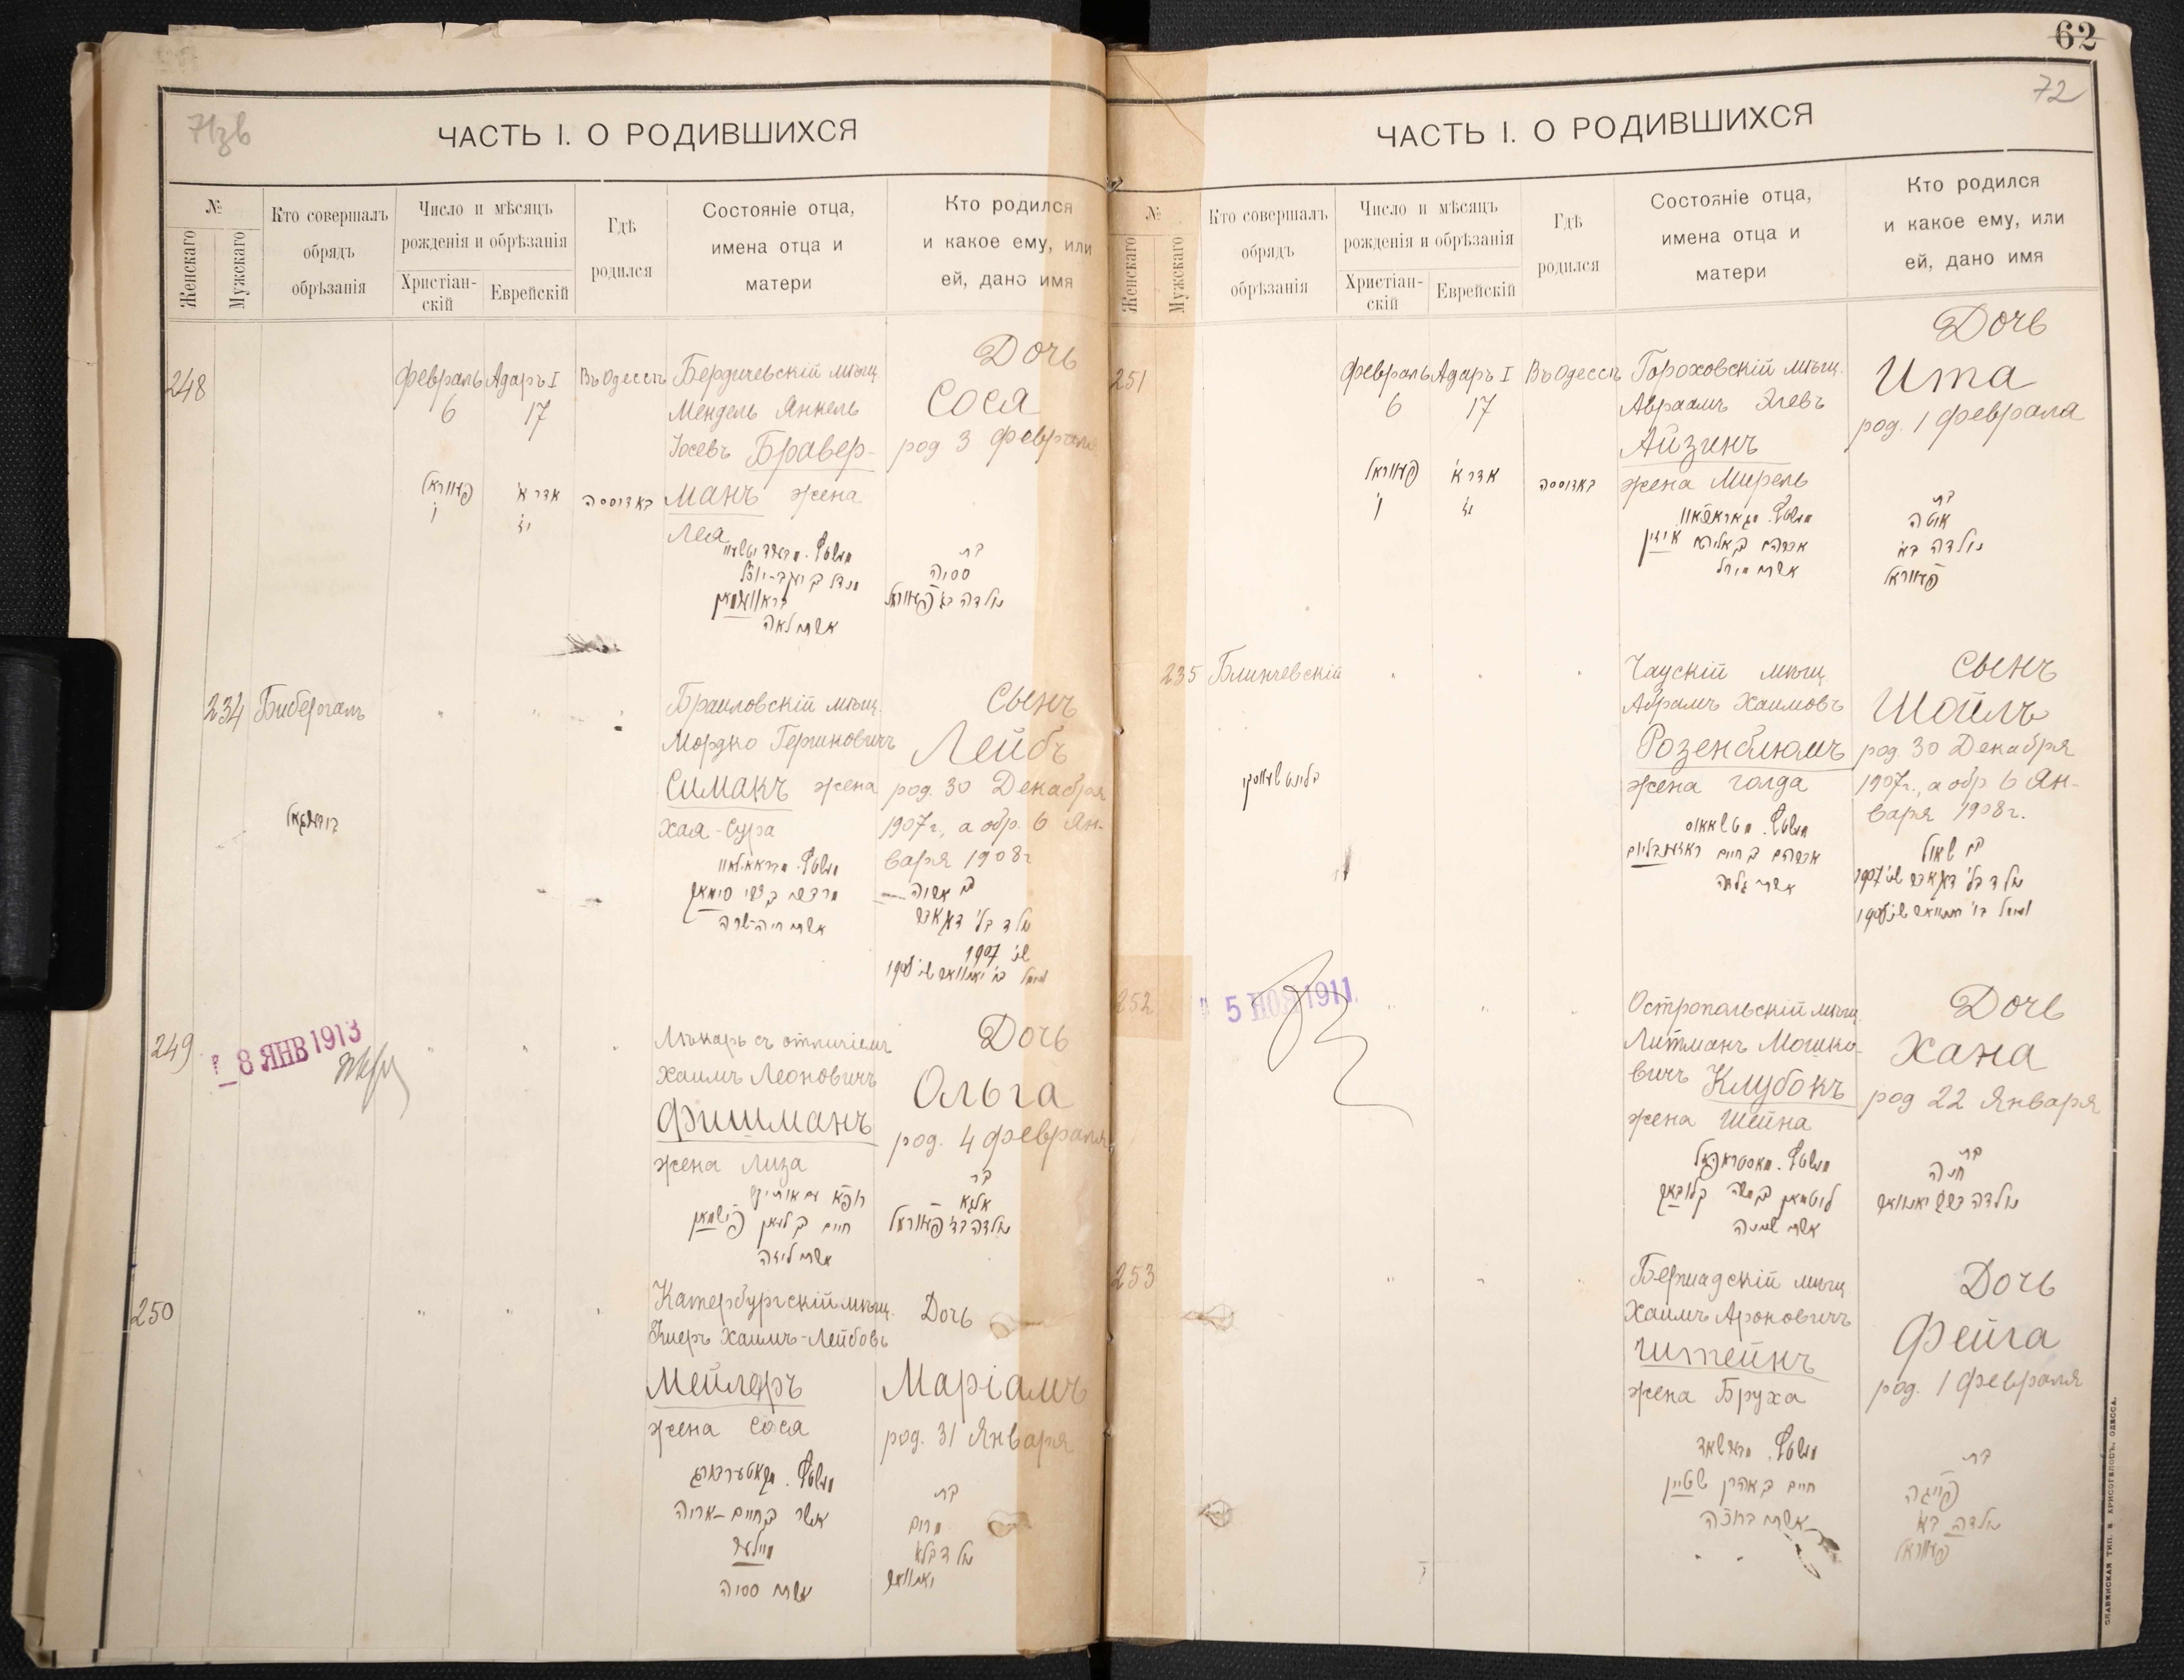 71зв
ЧАСТЬ I. О РОДИВШИХСЯ
№
Женскаго
Мужскаго
Кто совершалъ
обрядъ
обрѣзанія
Число и мѣсяцъ
рожденія и обрѣзанія
Христіан-
скій
Еврейскій
Гдѣ
родился
Состояніе отца,
имена отца и
матери
Кто родился
и какое ему, или
ей, дано имя
248
Февраль
6
Адаръ I
17
Въ Одессѣ
Бердичевскій мѣщ.
Мендель Янкель
Іосевъ Бравер-
манъ жена
Лея
Дочь
Сося
род 3 Февраля
פעווראל
ו'
אדר א'
באדוססה
אשתו לאה
בת
סוסיה
234
Бибергалъ
"
"
"
Браиловскій мѣщ.
Мордко Гершковичъ
Симакъ жена
Хая-Сура
Сынъ
Лейбъ
род. 30 Декабря
1907 г., а обр. 6 Ян-
варя 1908 г
אשתו חיה-שרה
1907
249
8 ЯНВ 1913
"
"
"
Лѣкарь съ отличіемъ
Хаимъ Леоновичъ
Фишманъ
жена Лиза
Дочь
Ольга
род. 4 Февраля
אשתו ליזה
בת
אלגא
נולדה בד' פעווראל
250
"
"
"
Катербургскій мѣщ.
Хаимъ-Лейбовъ
Мейлеръ
жена Сося
Дочь
Маріамъ
род. 31 Января
אשר ב חיים-אריה
מיילער
אשתו סוסיה
בת
מרים
62
72
ЧАСТЬ I. О РОДИВШИХСЯ
№
Женскаго
Мужскаго
Кто совершалъ
обрядъ
обрѣзанія
Число и мѣсяцъ
рожденія и обрѣзанія
Христіан-
скій
Еврейскій
Гдѣ
родился
Состояніе отца,
имена отца и
матери
Кто родился
и какое ему, или
ей, дано имя
251
Февраль
6
Адаръ I
17
Въ Одессѣ
Гороховскій мѣщ.
Авраамъ Элевъ
Айзинъ
жена Мирель
Дочь
Ита
род. 1 Февраля
פעווראל
ו'
אדר א'
באדוססה
בת
איטה
נולדה בא'
פעווראל
235
Блинчевскій
"
"
"
Чаускій мѣщ.
Абрамъ Хаимовъ
Розенблюмъ
жена Голда
Сынъ
Шоилъ
род. 30 Декабря
1907 г., а обр 6 Ян-
варя 1908 г.
בן שאול
252
5 НОЯ 1911
"
"
"
Остропольскій мѣщ.
Литманъ Мошко-
вичъ Клубокъ
жена Шейна
Дочь
Хана
род 22 Января
בת
חנה
253
"
"
"
Бершадскій мѣщ
Хаимъ Ароновичъ
Штейнъ
жена Бруха
Дочь
Фейга
род. 1 Февраля
חיים ב אהרן שטיין
אשתו ברוכה
בת
פייגה
נולדה בא'
פעווראל
СЛАВЯНСКАЯ ТИП. Н. ХРИСОГЕЛОСЪ, ОДЕССА.